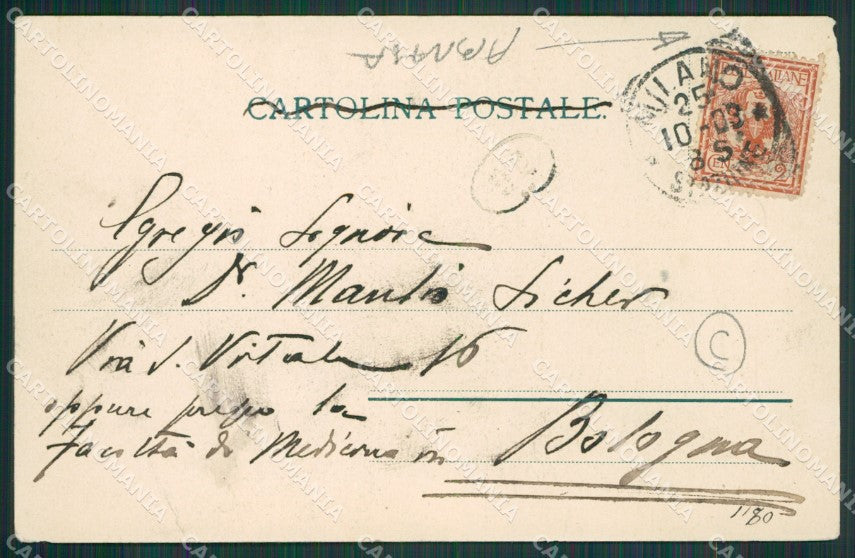 CARTOLINA POSTALE.
MILANO
25
10-03
8 S
Egregio Signore
Dr. Manlio Sicher
Via S. Vitale 16
oppure presso la
Facoltà di Medicina in
Bologna
C
1180
CARTOLINOMANIA